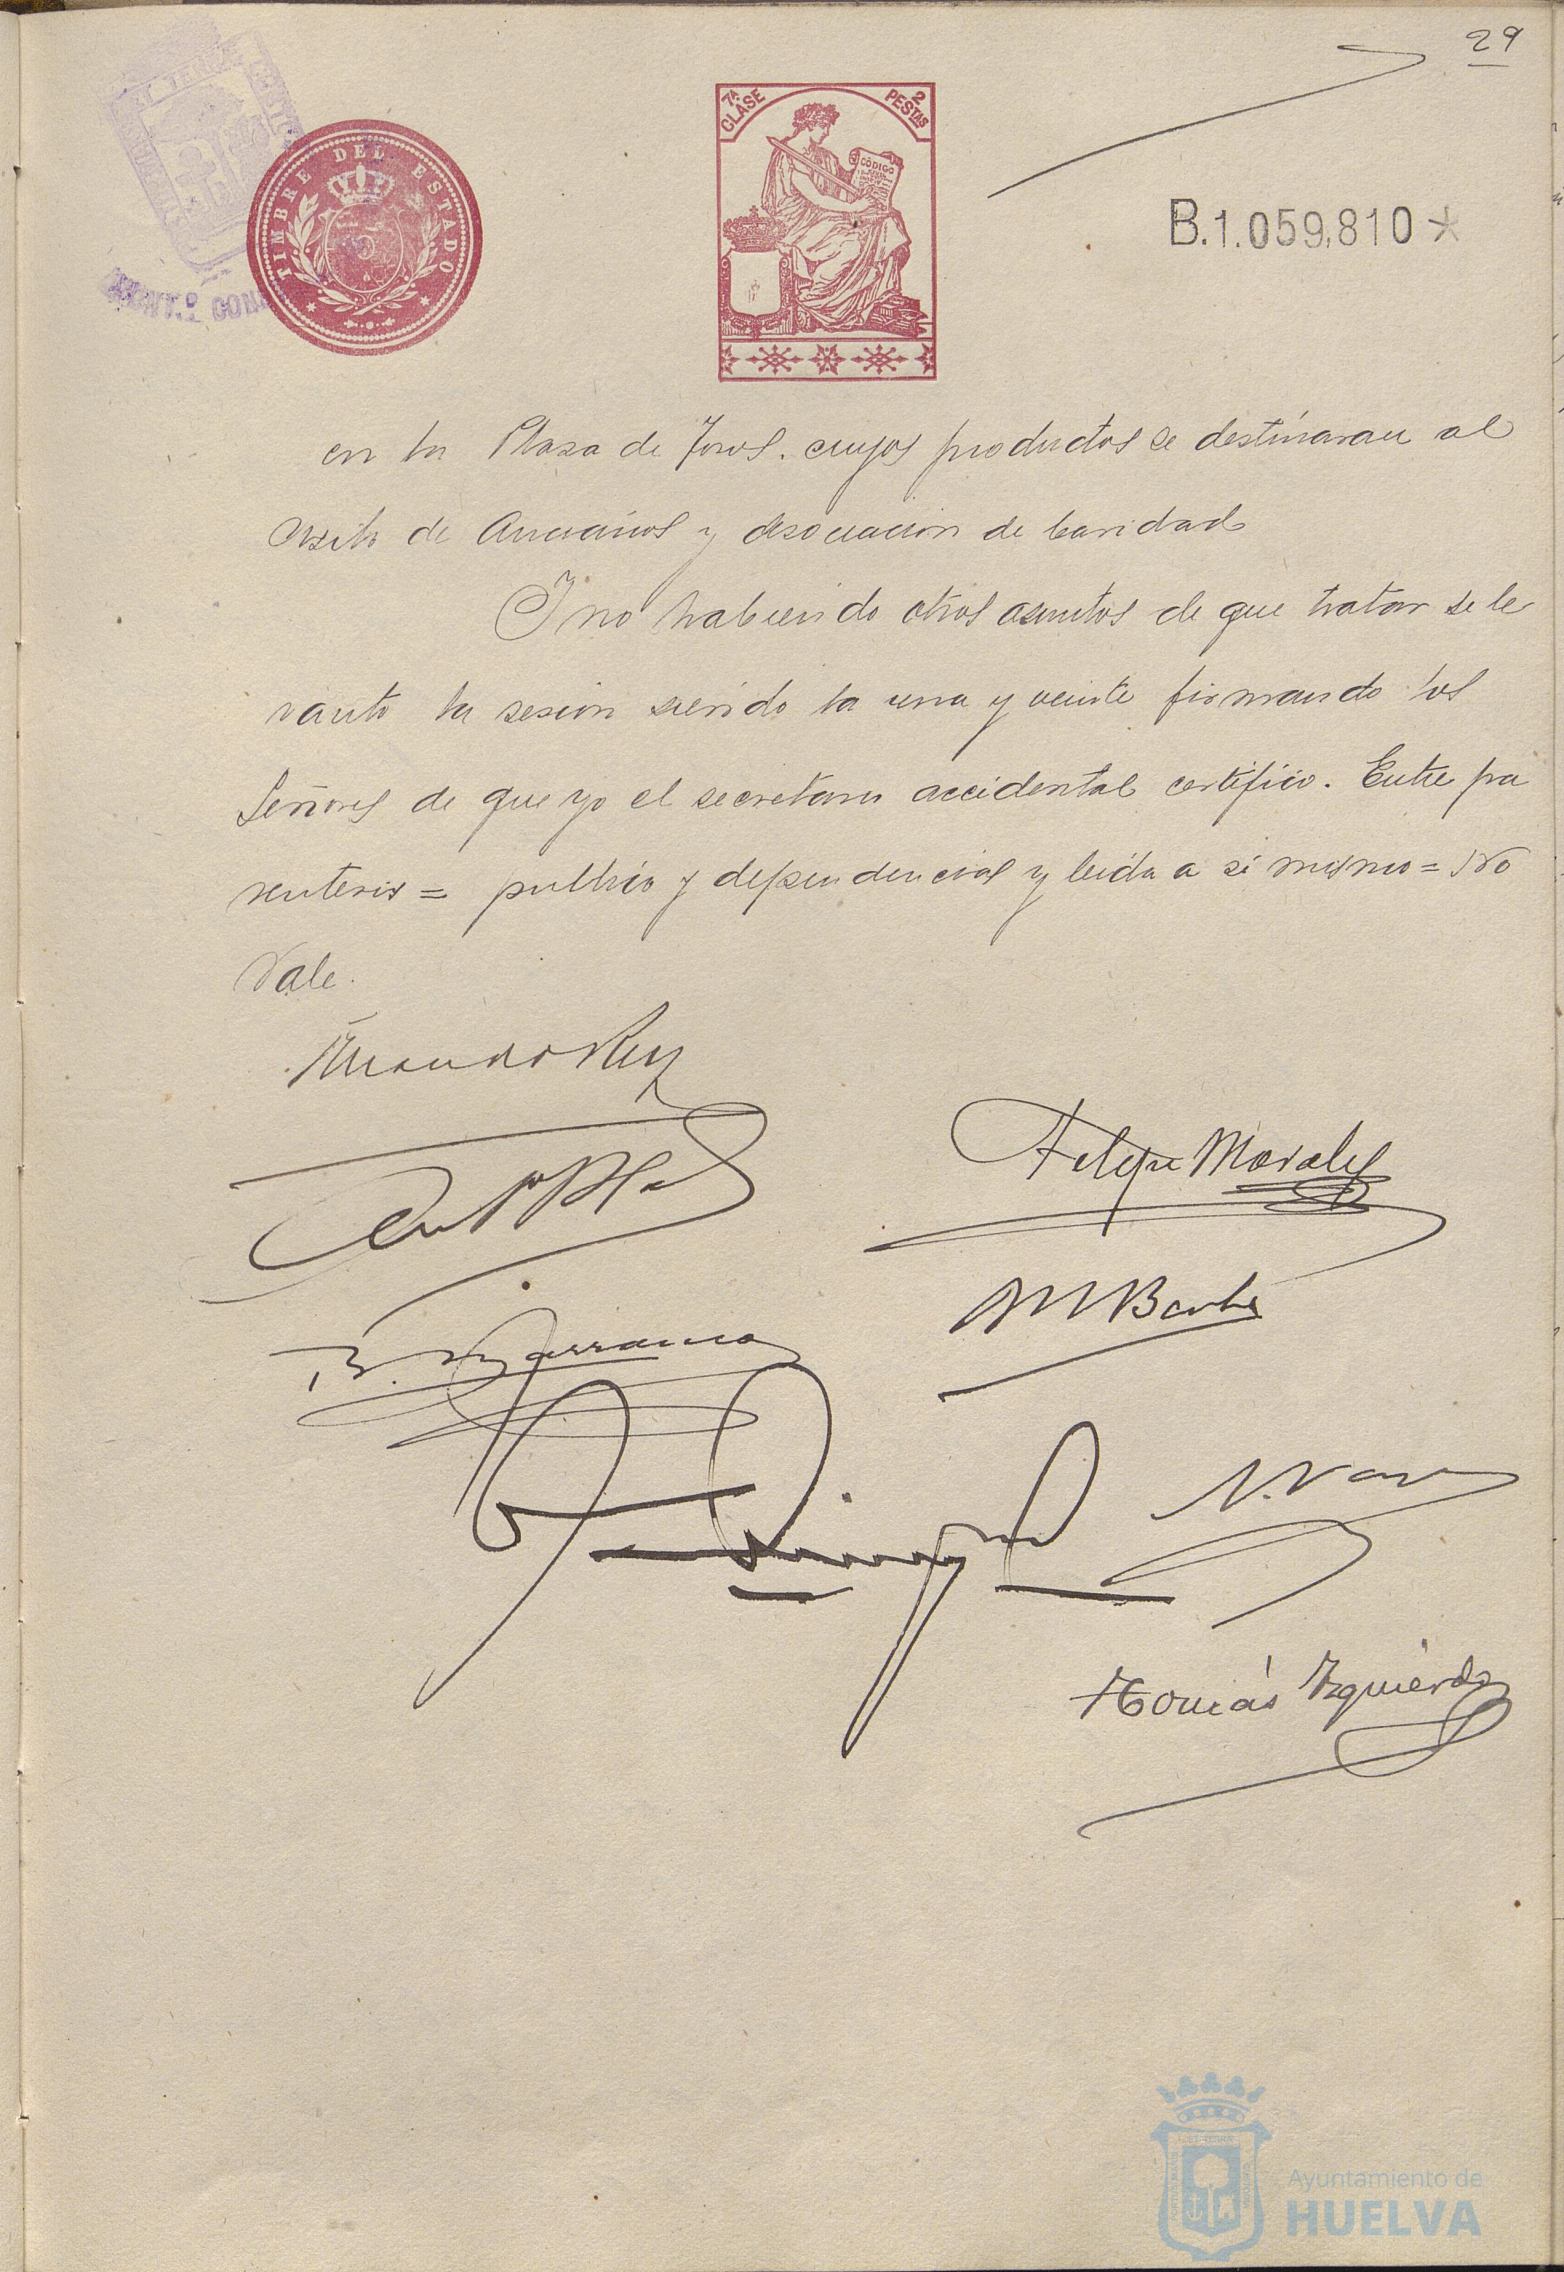 29
TIMBRE DEL ESTADO
7ª CLASE
2 PESTAS
CÓDIGO
B.1.059,810*
en la Plaza de Toros. cuyos productos se destinaran al
Asilo de Ancianos y Asociacion de Caridad
Y no habiendo otros asuntos de que tratar se le
vanto la sesion siendo la una y veinte firmando los
Señores de que yo el secretario accidental certifico. Entre pa
rentesis = publico y dependencias y leida a si mismo = No
Vale.
Felipe Morales
Tomás Izquierdo
Ayuntamiento de
HUELVA